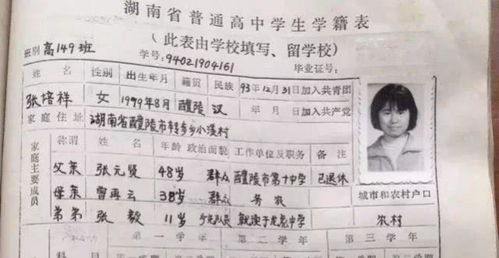 湖南省普通高中学生学籍表
(此表由学校填写、留学校)
班别 高149班
学号: 94021904161 毕业证号:
姓名 性别 出生年月 籍贯 民族 93年12月31日加入共青团
张培祥 女 1979年8月 醴陵 汉 年 月 日加入共产党
家庭住址 湖南省醴陵市转步乡小溪村
家庭主要成员 称谓 姓名 年龄 政治面貌 工作单位及职务 备注
父亲 张元贤 48岁 群众 醴陵市第十中学 已退休
城市和农村户口
母亲 曾再云 38岁 群众 务农
弟弟 张毅 11岁 少先队员 就读于 中学 农村
第一学年 第二学年 第三学年